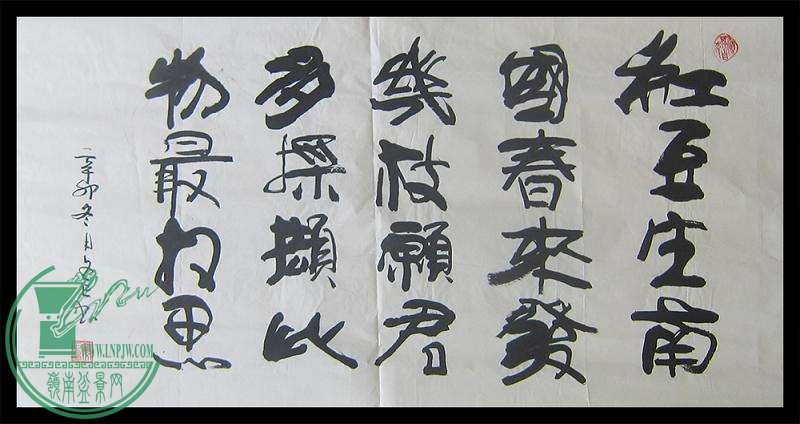 紅豆生南
國春來發
幾枝願君
多採擷此
物最相思
辛卯冬月
WWW.LNPJW.COM
嶺南盆景网